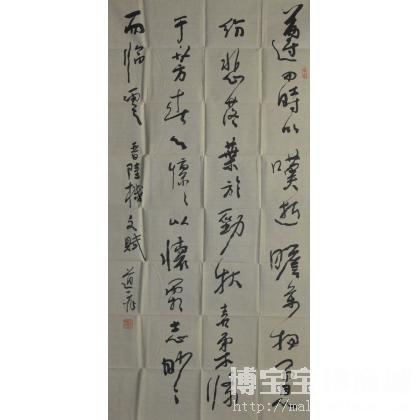 遵四時以嘆逝瞻萬物而思
紛悲落葉於勁秋喜柔條
于芳春心懍〻以懷霜志眇〻
而臨雲 晉陸機文賦